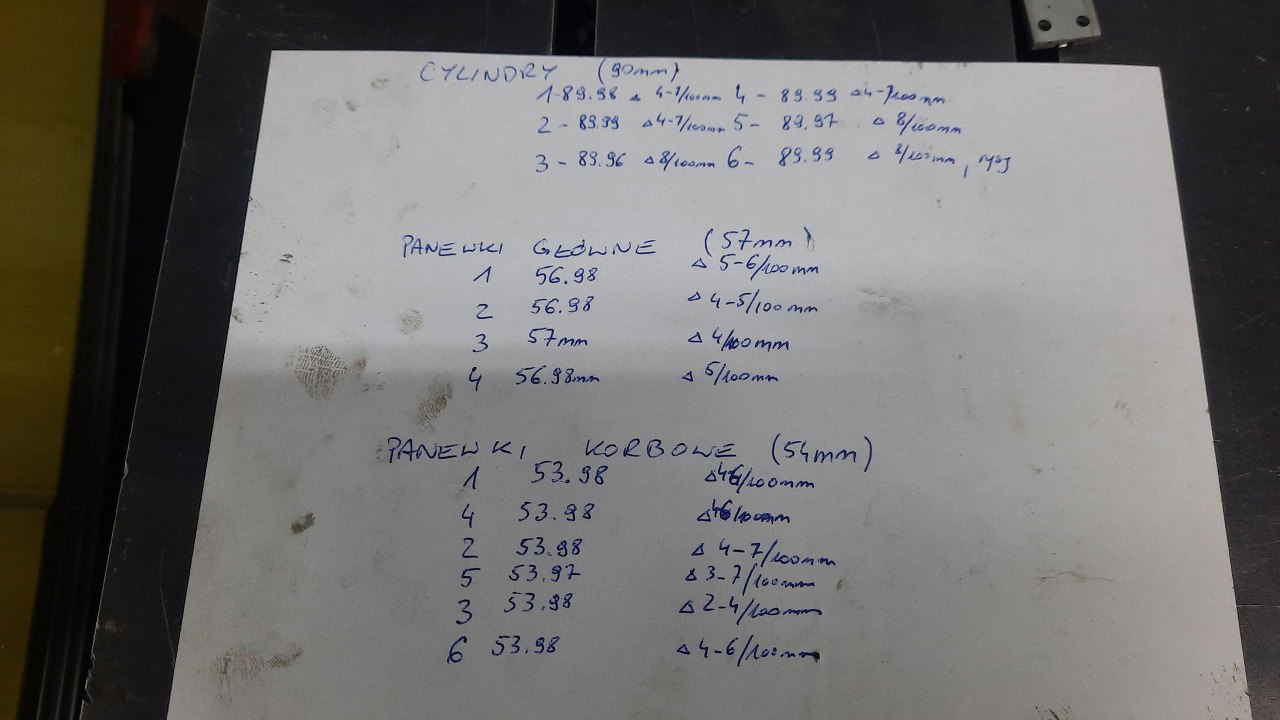 CYLINDRY (90mm)
1-89.98 Δ 4-7/100mm 4 - 89.99 Δ4-7/100mm
2 - 89.99 Δ4-7/100mm 5- 89.97 Δ 8/100mm
3 - 89.96 Δ8/100mm 6- 89.99 Δ 8/100mm,
PANEWKI GŁÓWNE (57mm)
1 56.98 Δ 5-6/100mm
2 56.98 Δ 4-5/100mm
3 57mm Δ 4/100mm
4 56.98mm Δ 5/100mm
PANEWKI KORBOWE (54mm)
1 53.98 Δ46/100mm
4 53.98
2 53.98 Δ 4-7/100mm
5 53.97 Δ3-7/100mm
3 53.98 Δ2-4/100mm
6 53.98 Δ4-6/100mm